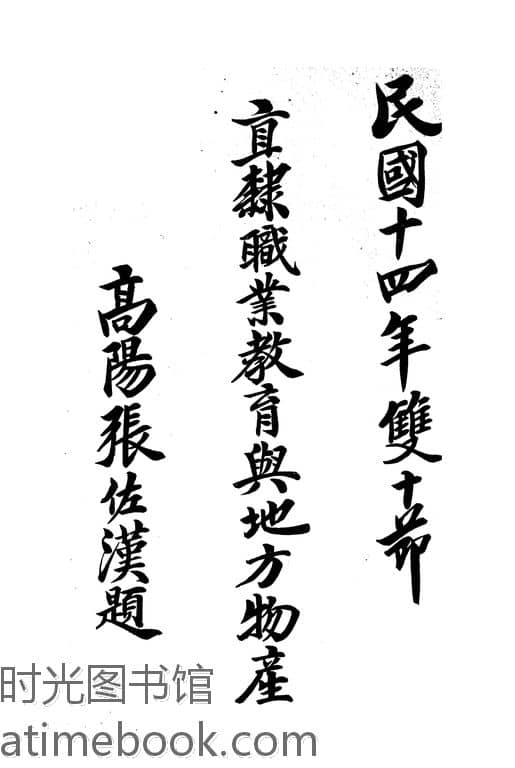 民國十四年雙十節
直隸職業教育與地方物產
高陽張佐漢題
时光图书馆
atimebook.com